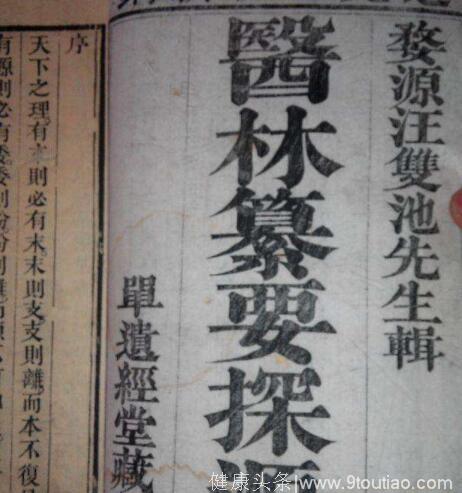 婺源汪雙池先生輯
醫林纂要探
單遺經堂藏
序
天下之理有本則必有末末則支支則離而本不復
有源則必有委委則分分則離而源
健康头条/www.9toutiao.com